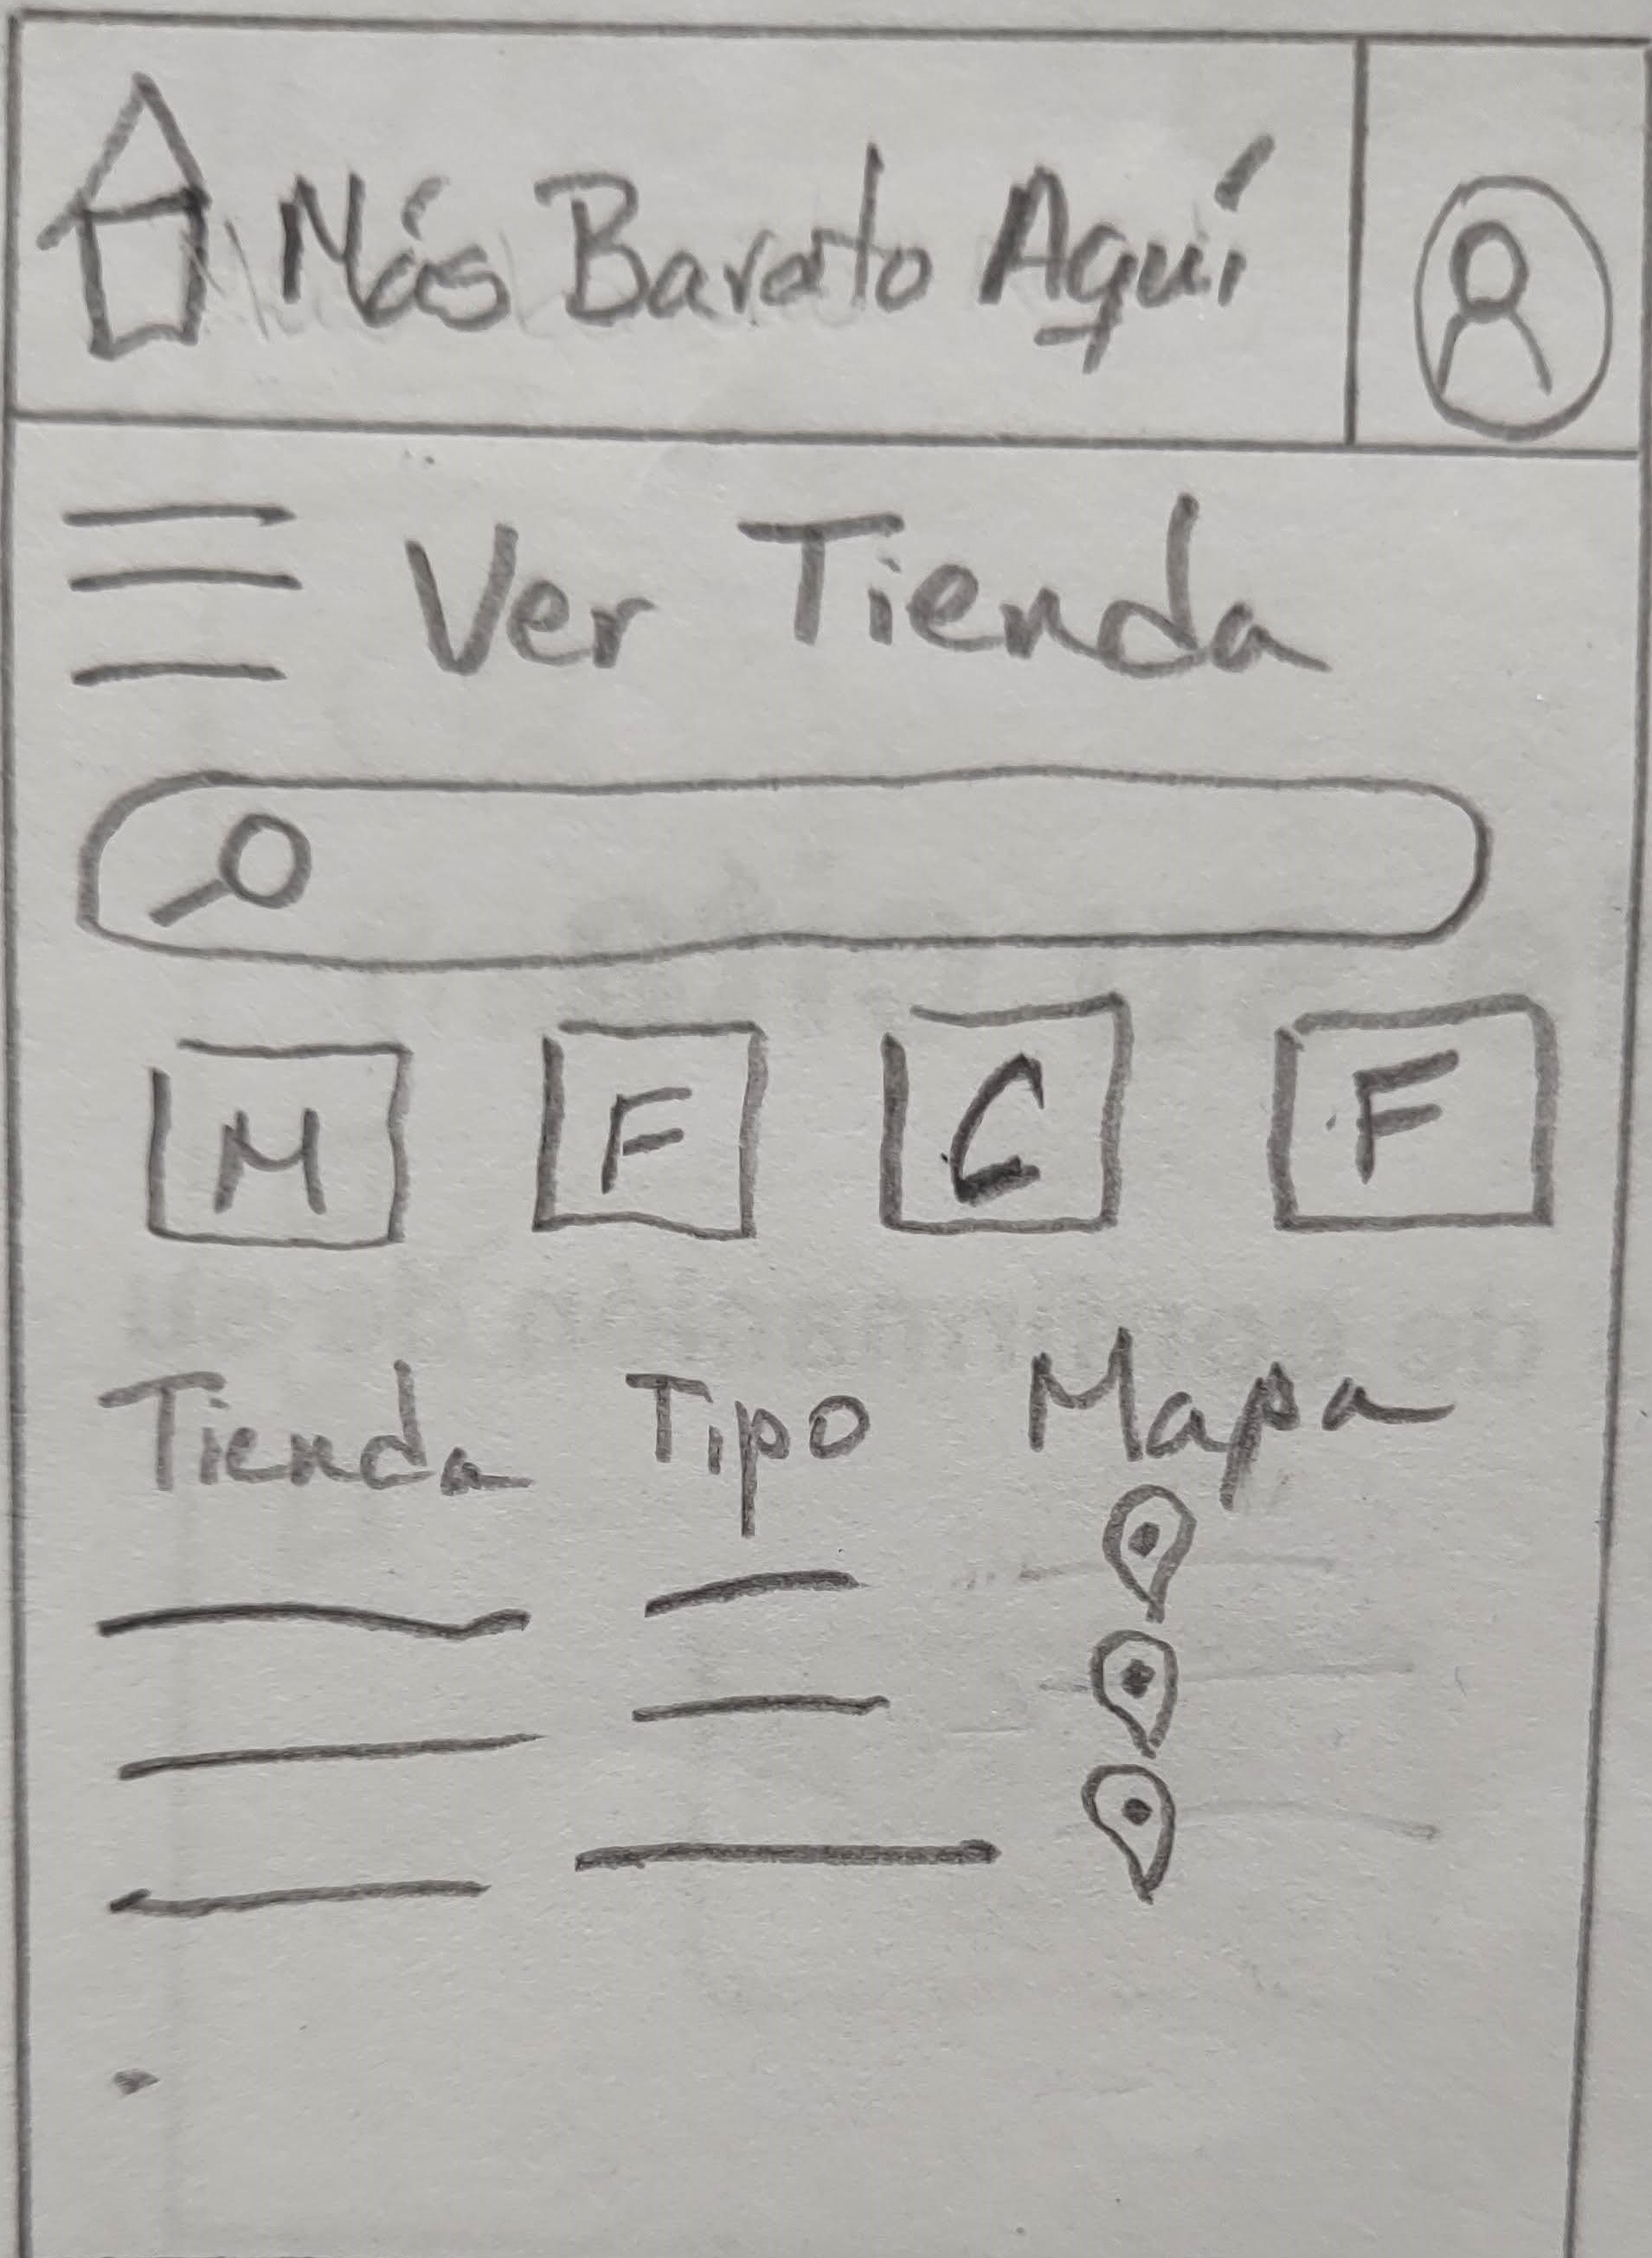 Más Barato Aquí
Ver Tienda
M F C F
Tienda Tipo Mapa